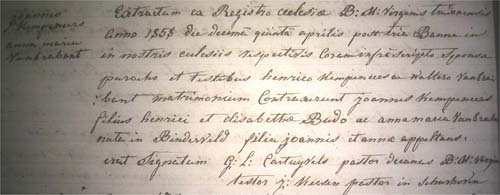 Joannes
Kempeneers
anna maria
Vanbrabant
Extractum ex Registro ecclesiæ B: M: Virginis
anno 1858 die decima quinta aprilis post tria Banna in
in nostris ecclesiis respectivis Coram infrascripto Sponsæ
parocho et testibus henrico Kempeneers ac Waltero Vanbra
bant matrimonium Contraxerunt joannes Kempeneers
filius henrici et elisabethæ Budo ac anna maria Vanbrabant
nata in Binderveld filia joannis et annæ appeltans
erat Signatum G: L: Cartuyvels pastor decanus B: M: Virg
testor j: pastor in